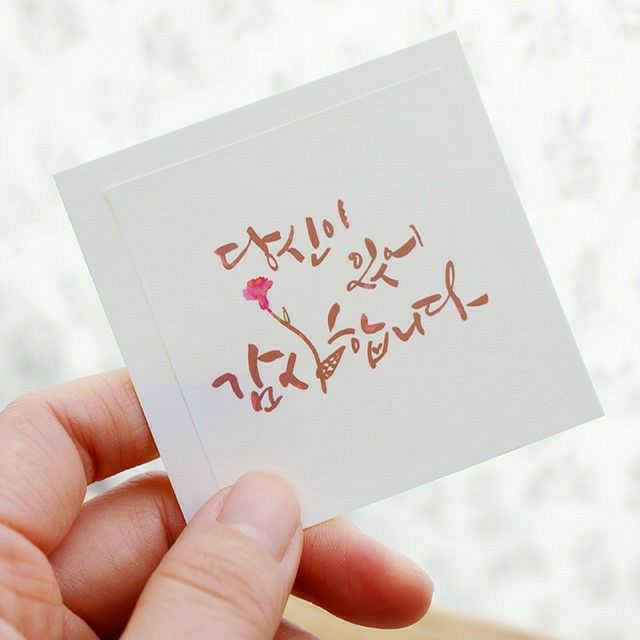 당신이 있어
감사합니다